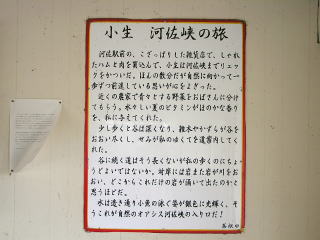 小生 河佐峡の旅
河佐駅前の、こざっぱりした雑貨店で、しゃれ
たハムと肉を買込んで、小生は河佐峡までリュッ
クをかついだ。ほんの数分だが自然に向かって一
歩ずつ前進している思いが心をよぎった。
近くの農家で青々とする野菜をおばさんに分け
てもらう。水々しい夏のビタミンがほのかな香り
を、私に与えてくれた。
少し歩くと谷は深くなり、雑木やかずらが谷を
おおい尽くし、せみが私のゆくてを道案内してく
れた。
谷に続く道はそう長くないが私の歩くのにちょ
うどよいではないか。対岸には岩また岩が川をお
おい、どこからこれだけの岩が涌いて出たのかと
思うほどだ。
水は透き通り小魚の泳ぐ姿が銀色に光輝く、そ
うこれが自然のオアシス河佐峡の入り口だ!